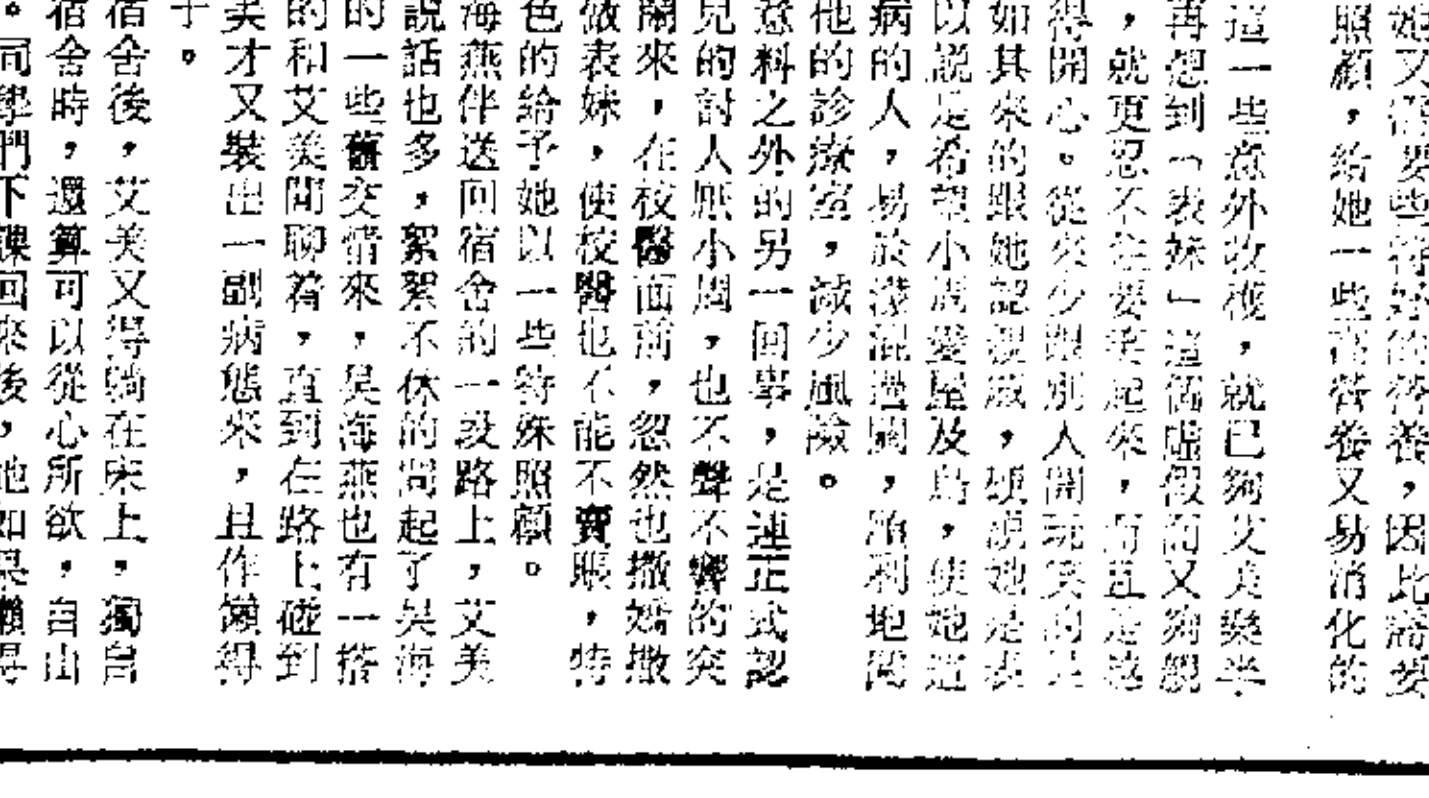 她又需要些特殊的營養，因此需要
照顧，給她一些富營養又易消化的
這一些意外收穫，就已夠艾美樂半
再想到「表妹」這個虛假而又夠親
，就更忍不住要笑起來，而且是越
得開心。從來少跟別人開玩笑的是
如其來的跟她認親戚，硬說她是表
以說是希望小周愛屋及烏，使她這
病的人，易於濛混過關，順利地
他的診療室，減少風險。
意料之外的另一回事，是連正式認
兒的討人厭小周，也不聲不響的突
鬧來，在校醫面前，忽然也撒嬌撒
做表妹，使校醫也不能不賣賬，特
色的給予她以一些特殊照顧。
海燕伴送回宿舍的一段路上，艾美
說話也多，絮絮不休的問起了吳海
的一些舊交情來，吳海燕也有一搭
的和艾美閒聊着，直到在路上碰到
美才又裝出一副病態來，且作懶得
于。
宿舍後，艾美又得躺在床上，獨自
宿舍時，還算可以從心所欲，自由
。同學們下課回來後，她如果懶得